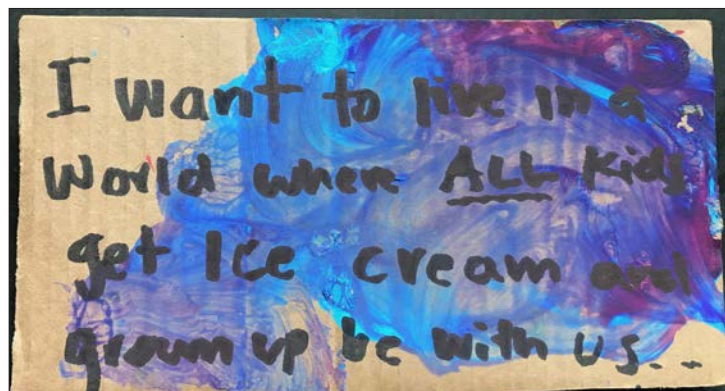 I want to live in a
World where ALL Kids
get Ice cream and
grown up be with us...